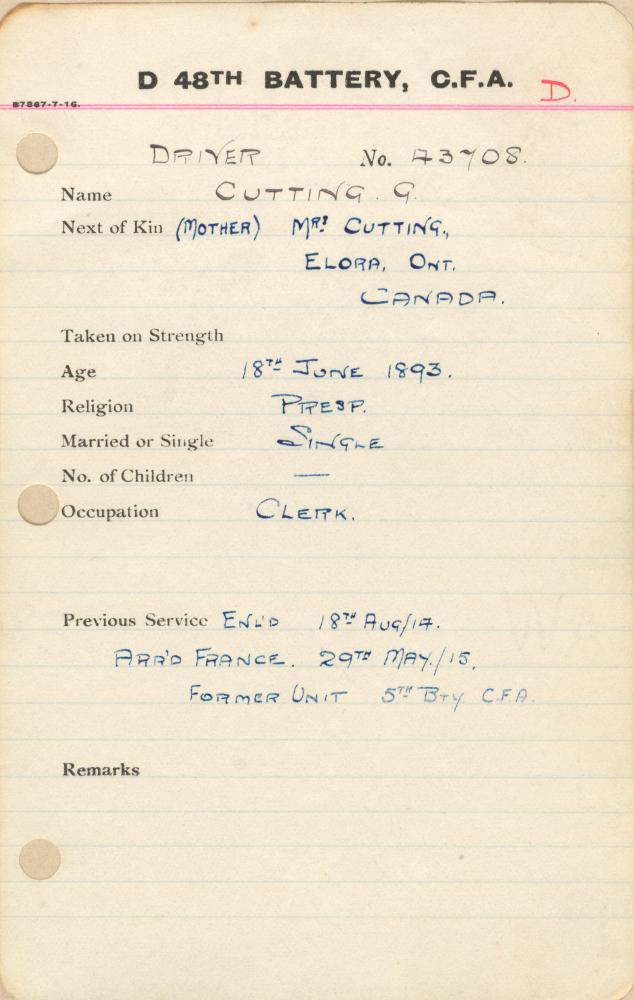 D 48TH BATTERY, C.F.A. D.
B7867-7-16.
DRIVER No. A3408.
Name CUTTING. G.
Next of Kin (MOTHER) MRS CUTTING,
ELORA, ONT.
CANADA.
Taken on Strength
Age 18TH JUNE 1893.
Religion PRESP.
Married or Single SINGLE
No. of Children —
Occupation CLERK.
Previous Service ENL'D 18TH AUG/14.
ARR'D FRANCE. 29TH MAY./15.
FORMER UNIT 5TH BTY. C.F.A.
Remarks